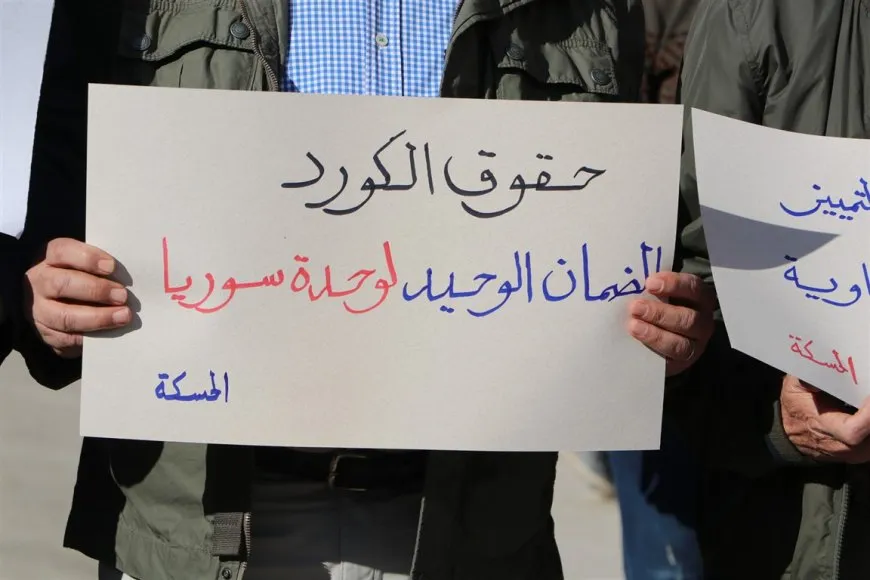 حقوق الكورد
الضمان الوحيد لوحدة سوريا
الحسكة
الحسكة